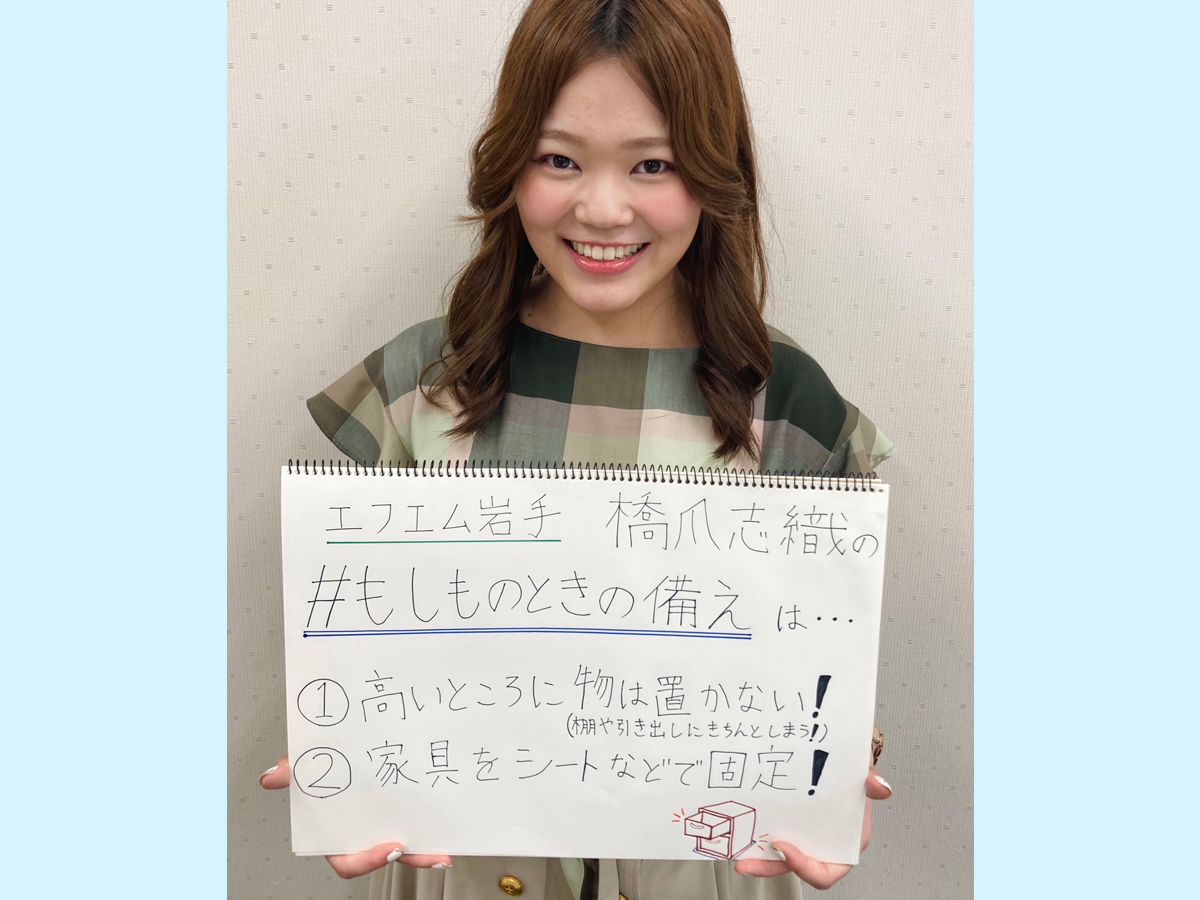 エフエム岩手 橋爪志織の
#もしものときの備え は…
① 高いところに物は置かない!
(棚や引き出しにきちんとしまう!)
② 家具をシートなどで固定!